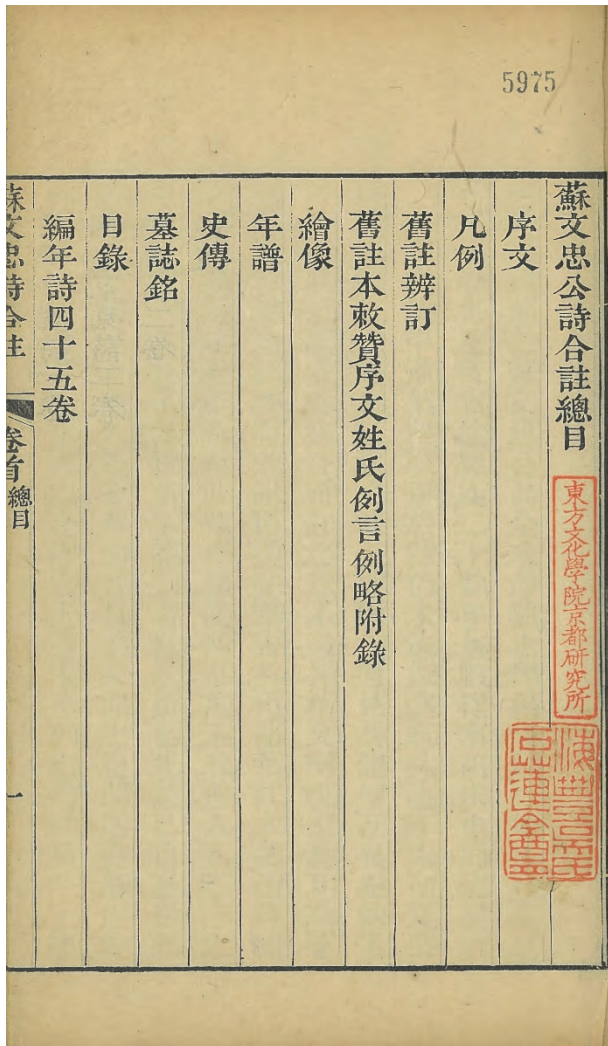 5975
蘇文忠公詩合註總目
東方文化學院京都研究所
序文
凡例
舊註辨訂
舊註本敕贊序文姓氏例言例略附錄
繪像
年譜
史傳
墓誌銘
目錄
編年詩四十五卷
蘇文忠詩合註 卷首 總目 一